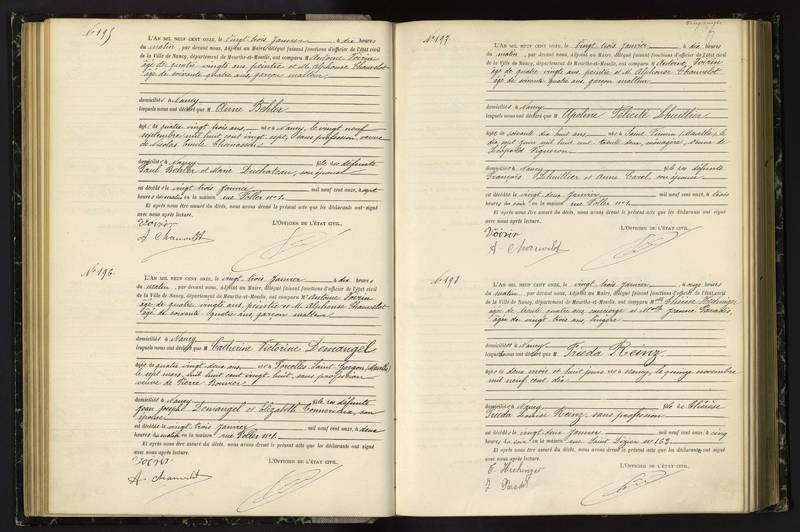 N° 195
L'AN MIL NEUF CENT ONZE, le vingt trois janvier à dix heures
du matin, par devant nous, Adjoint au Maire, délégué faisant fonctions d'officier de l'état civil
de la Ville de Nancy, département de Meurthe-et-Moselle, ont comparu M Antoine Voirin
âgé de quatre vingts ans peintre et M. Alphonse Chauvelot
âgé de soixante quatre ans garçon
domiciliés à Nancy
lesquels nous ont déclaré que M Anne Behler
âgée de quatre vingt trois ans, née à Nancy, le vingt neuf
septembre mil huit cent vingt sept, sans profession, veuve
de Nicolas Emile
domiciliée à Nancy fille des défunts
Paul Behler et Marie Duchateau, son épouse
est décédée le vingt trois janvier mil neuf cent onze, à sept
heures du matin en la maison rue Voller n° 1.
Et après nous être assuré du décès, nous avons dressé le présent acte que les déclarants ont signé
avec nous après lecture. L'OFFICIER DE L'ÉTAT CIVIL,
Voirin
A. Chauvelot
N° 196
L'AN MIL NEUF CENT ONZE, le vingt trois janvier à dix heures
du matin, par devant nous, Adjoint au Maire, délégué faisant fonctions d'officier de l'état civil
de la Ville de Nancy, département de Meurthe-et-Moselle, ont comparu M Antoine Voirin
âgé de quatre vingts ans, peintre et M. Alphonse Chauvelot
âgé de soixante quatre ans garçon
domiciliés à Nancy
lesquels nous ont déclaré que M Catherine Victorine Demangel
âgée de quatre vingt deux ans, née à Saint Gorgon
le sept mars mil huit cent vingt huit, sans profession
veuve de Pierre Bouvier
domiciliée à Nancy fille des défunts
Jean Joseph Demangel et Elizabeth son
épouse
est décédée le vingt trois janvier mil neuf cent onze, à deux
heures du matin en la maison rue Voller n° 1.
Et après nous être assuré du décès, nous avons dressé le présent acte que les déclarants ont signé
avec nous après lecture. L'OFFICIER DE L'ÉTAT CIVIL,
Voirin
A. Chauvelot
N° 197
L'AN MIL NEUF CENT ONZE, le vingt trois janvier à dix heures
du matin, par devant nous, Adjoint au Maire, délégué faisant fonctions d'officier de l'état civil
de la Ville de Nancy, département de Meurthe-et-Moselle, ont comparu M Antoine Voirin
âgé de quatre vingts ans peintre et M. Alphonse Chauvelot
âgé de soixante quatre ans, garçon
domiciliés à Nancy
lesquels nous ont déclaré que M Apoline Félicité Lhuillier
âgée de soixante dix huit ans née à Saint Firmin le
dix sept juin mil huit cent trente deux, ménagère, veuve de
Léopold Vigneron
domiciliée à Nancy fille des défunts
François Lhuillier et Anne Carel, son épouse
est décédée le vingt deux janvier mil neuf cent onze, à trois
heures du soir en la maison rue Voller n° 1.
Et après nous être assuré du décès, nous avons dressé le présent acte que les déclarants ont signé
avec nous après lecture. L'OFFICIER DE L'ÉTAT CIVIL,
Voirin
A. Chauvelot
N° 198
L'AN MIL NEUF CENT ONZE, le vingt trois janvier à onze heures
du matin, par devant nous, Adjoint au Maire, délégué faisant fonctions d'officier de l'état civil
de la Ville de Nancy, département de Meurthe-et-Moselle, ont comparu M
âgée de trente quatre ans concierge et Melle Jeanne
âgée de vingt trois ans, lingère
domiciliés à Nancy
lesquels nous ont déclaré que M Frieda Reinz
âgée de deux mois et huit jours née à Nancy, le quinze novembre
mil neuf cent dix
domiciliée à Nancy fille de Thérèse
Frieda Louise Reinz sans profession
est décédée le vingt deux janvier mil neuf cent onze, à cinq
heures du soir en la maison rue Saint Dizier n° 163
Et après nous être assuré du décès, nous avons dressé le présent acte que les déclarants ont signé
avec nous après lecture. L'OFFICIER DE L'ÉTAT CIVIL,